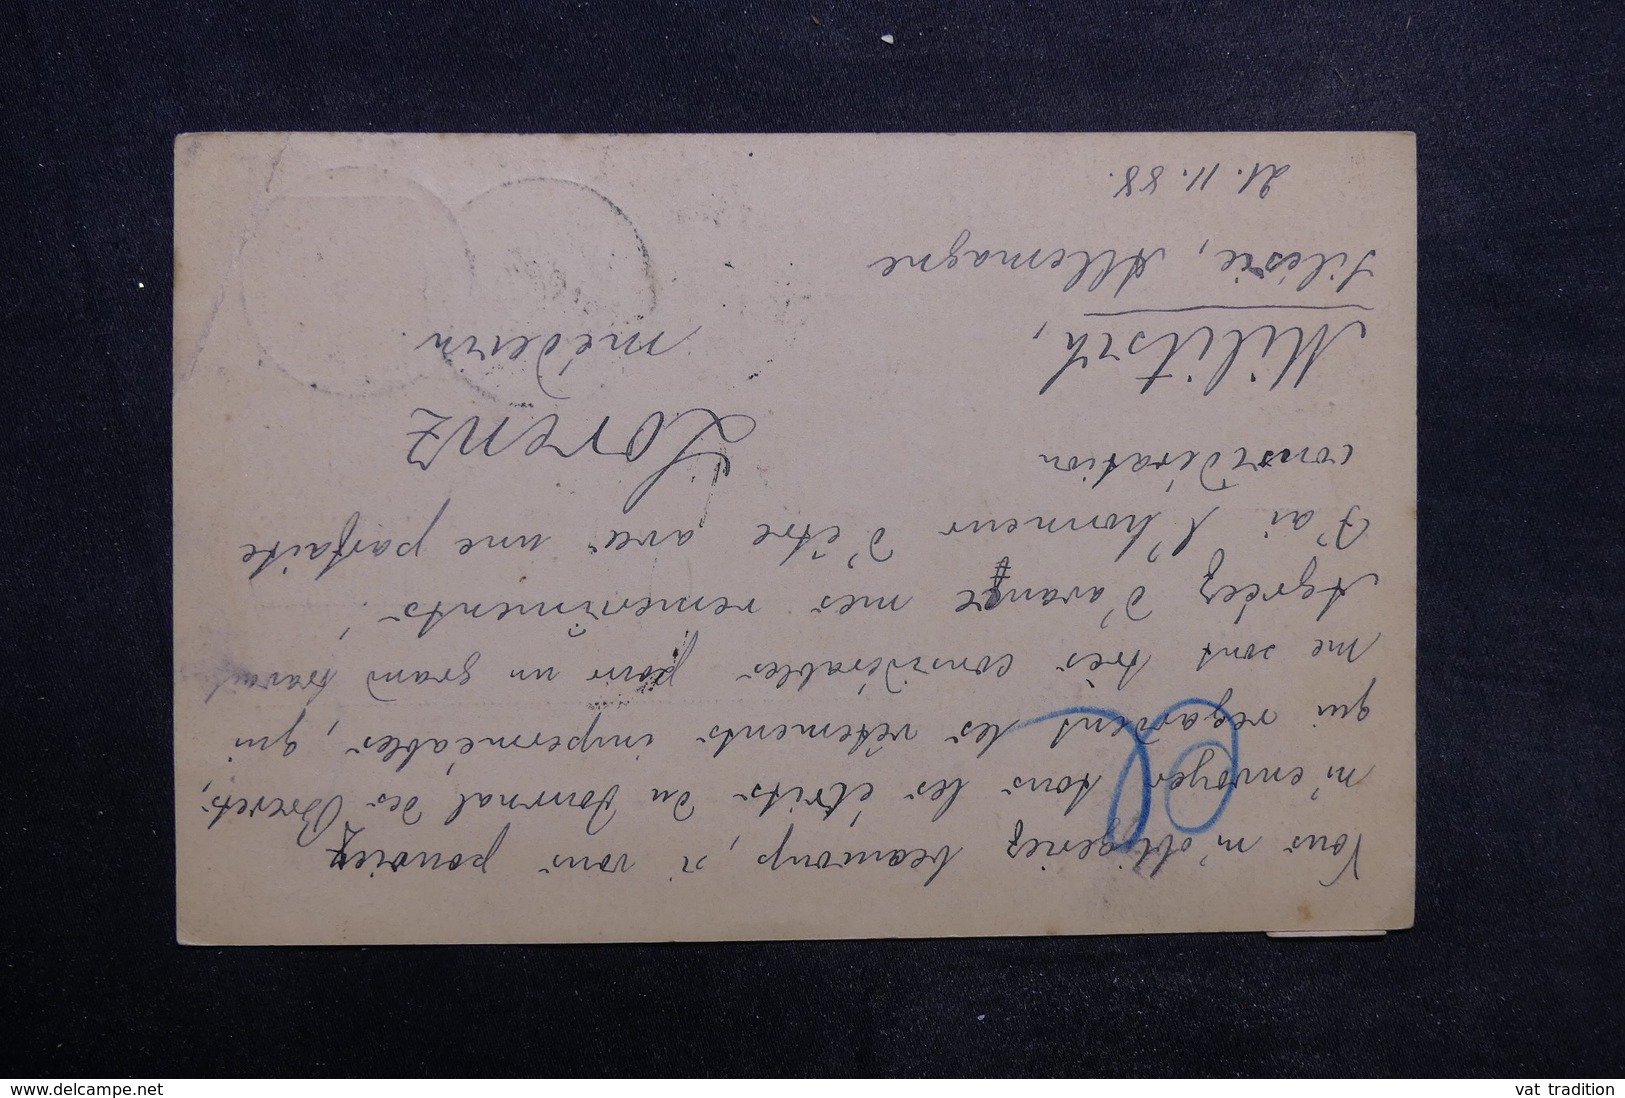 Vous m'obligeriez beaucoup, si vous pouviez
m'envoyer tous les écrits du Journal des Brevets,
qui regardent les vêtements imperméables, qui
me sont très considérables pour un grand travail
Agréez d'avance mes remerciments!
J'ai l'honneur d'être avec une parfaite
considération
Lorenz
médecin.
Militsch,
Silésie, Allemagne
21. 11. 88.
www.delcampe.net
vat tradition